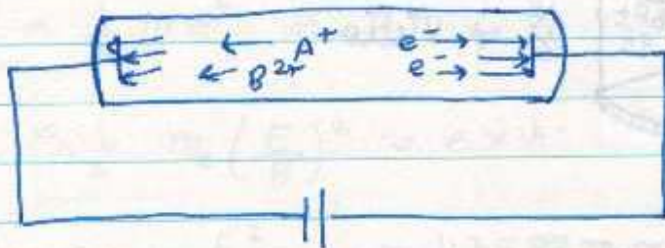 A⁺ e⁻
B²⁺ e⁻